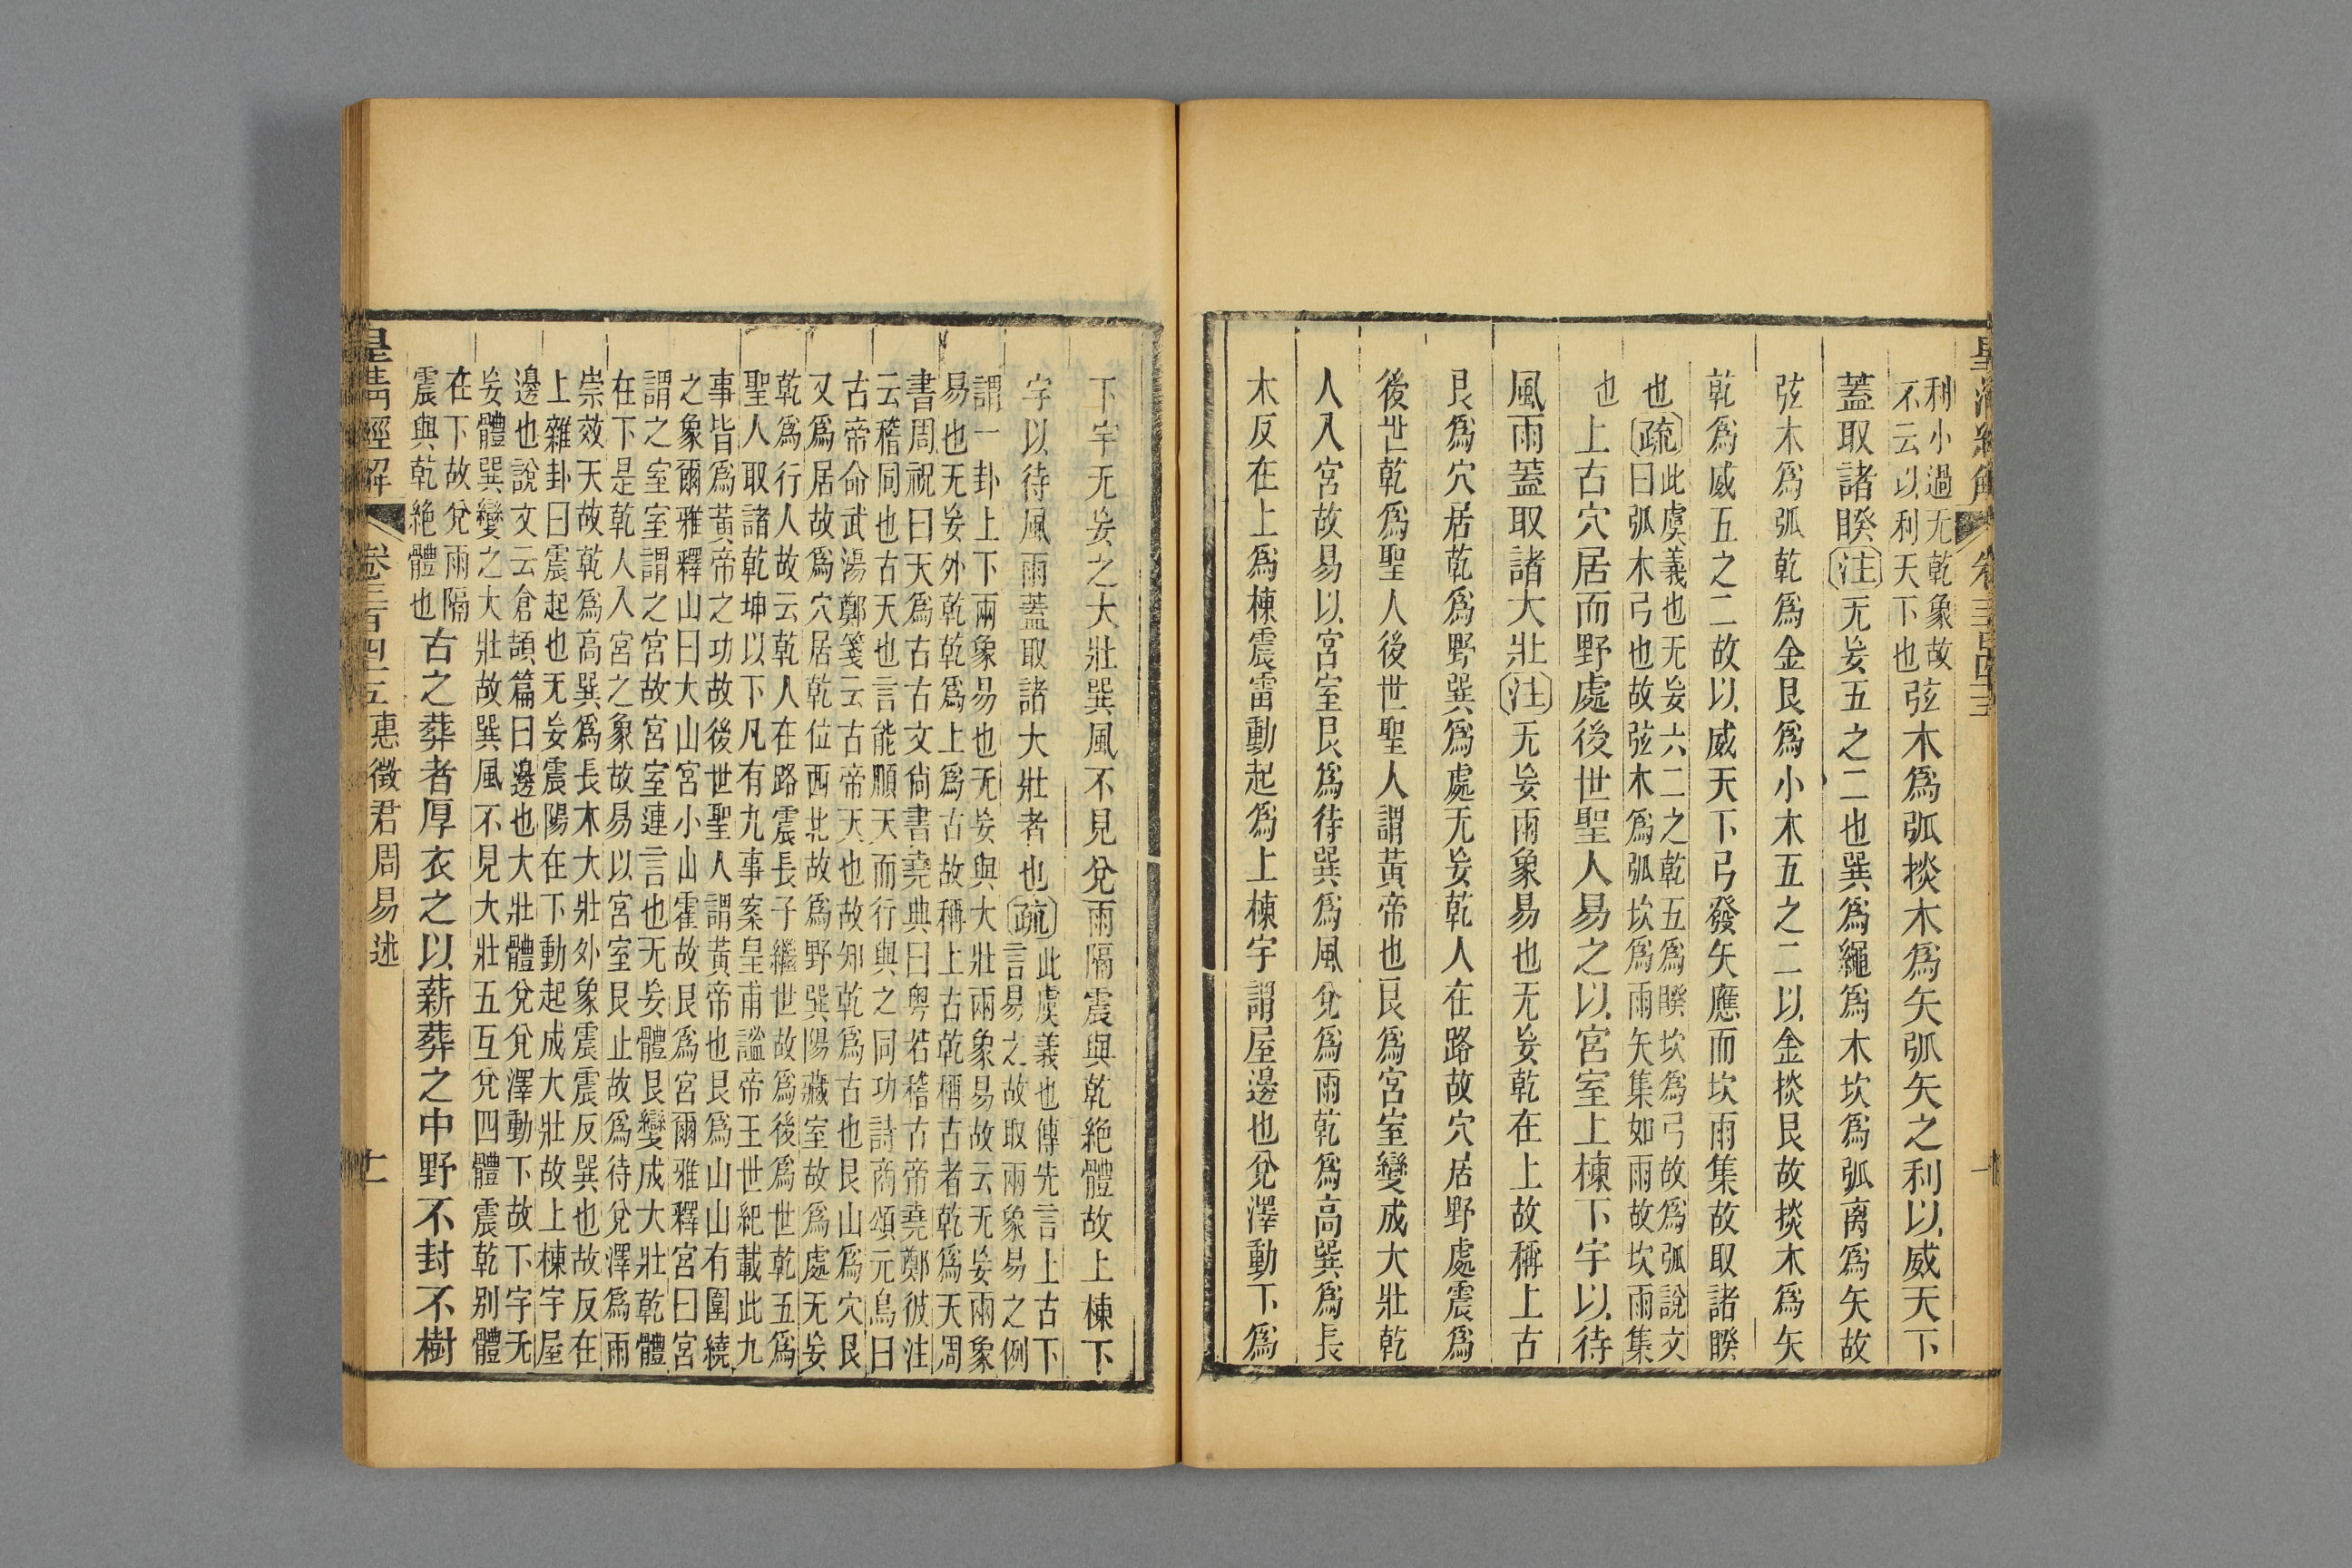 皇清經解
卷三百四十五
利小過无乾象故
不云以利天下也
弦木爲弧掞木爲矢弧矢之利以威天下
蓋取諸睽注无妄五之二也巽爲繩爲木坎爲弧离爲矢故
弦木爲弧乾爲金艮爲小木五之二以金掞艮故掞木爲矢
乾爲威五之二故以威天下弓發矢應而坎雨集故取諸睽
也疏
此虞義也无妄六二之乾五爲睽坎爲弓故爲弧說文
曰弧木弓也故弦木爲弧坎爲雨矢集如雨故坎雨集
也
上古穴居而野處後世聖人易之以宮室上棟下宇以待
風雨蓋取諸大壯注无妄兩象易也无妄乾在上故稱上古
艮爲穴居乾爲野巽爲處无妄乾人在路故穴居野處震爲
後世乾爲聖人後世聖人謂黃帝也艮爲宮室變成大壯乾
人入宮故易以宮室艮爲待巽爲風兌爲雨乾爲高巽爲長
木反在上爲棟震雷動起爲上棟宇謂屋邊也兌澤動下爲
下宇无妄之大壯巽風不見兌雨隔震與乾絶體故上棟下
宇以待風雨蓋取諸大壯者也疏
此虞義也傳先言上古下
言易之故取兩象易之例
謂一卦上下兩象易也无妄與大壯兩象易故云无妄兩象
易也无妄外乾乾爲上爲古故稱上古乾稱古者乾爲天周
書周祝曰天爲古古文尙書堯典曰粤若稽古帝堯鄭彼注
云稽同也古天也言能順天而行與之同功詩商頌元鳥曰
古帝命武湯鄭箋云古帝天也故知乾爲古也艮山爲穴艮
又爲居故爲穴居乾位西北故爲野巽陽藏室故爲處无妄
乾爲行人故云乾人在路震長子繼世故爲後爲世乾五爲
聖人取諸乾坤以下凡有九事案皇甫謐帝王世紀載此九
事皆爲黃帝之功故後世聖人謂黃帝也艮爲山山有圍繞
之象爾雅釋山曰大山宮小山霍故艮爲宮爾雅釋宮曰宮
謂之室室謂之宮故宮室連言也无妄體艮變成大壯乾體
在下是乾人入宮之象故易以宮室艮止故爲待兌澤爲雨
崇效天故乾爲高巽爲長木大壯外象震震反巽也故反在
上雜卦曰震起也无妄震陽在下動起成大壯故上棟宇屋
邊也說文云倉頡篇曰邊也大壯體兌兌澤動下故下宇无
妄體巽變之大壯故巽風不見大壯五互兌四體震乾別體
在下故兌雨隔
震與乾絶體也
古之葬者厚衣之以薪葬之中野不封不樹
皇清經解
卷三百四十五
惠徵君周易述